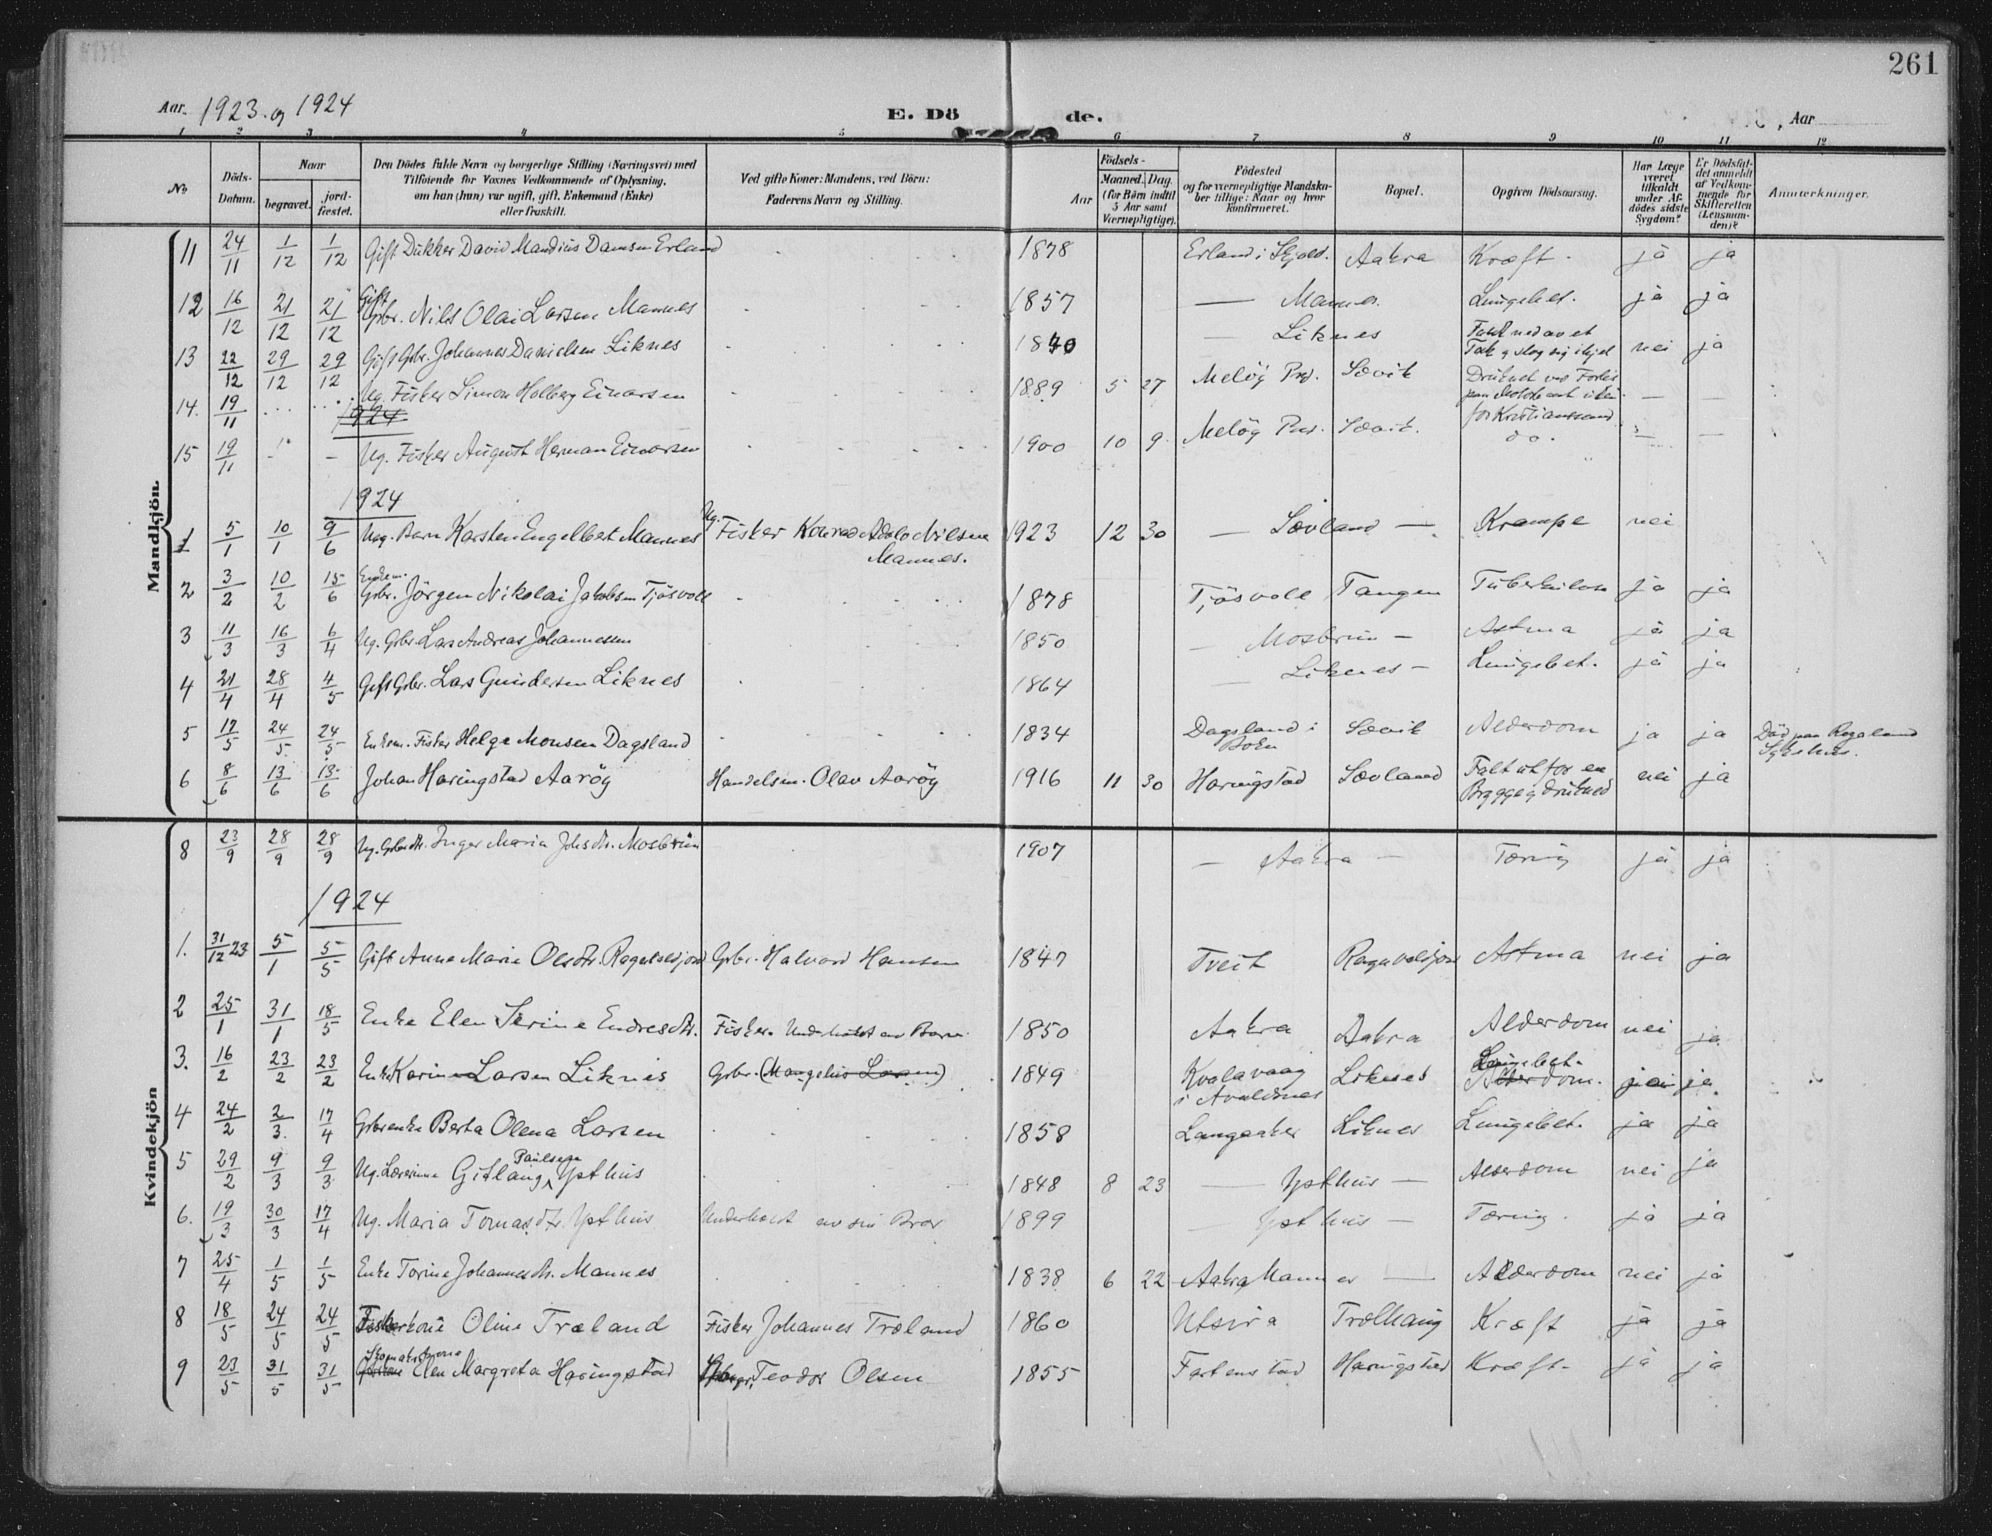 261
Aar. 1923. og 1924 E. Dö de. Aar
1 2 3 4 5 6 7 8 9 10 11 12
No Döds-Datum. Naar begravet. jord-fæstet. Den Dödes fulde Navn og borgerlige Stilling (Næringsvei) med Tilföiende for Voxnes Vedkommende af Oplysning, om han (hun) var ugift, gift, Enkemand (Enke) eller fraskilt. Ved gifte Koner: Mandens, ved Börn: Faderens Navn og Stilling. Födsels- Aar Maaned. Dag. (for Börn indtil 5 Aar samt Værnepligtige). Födested og for værnepligtige Mandskaber tillige: Naar og hvor konfirmeret. Bopæl. Opgiven Dödsaarsag. Har Læge været tilkaldt under Afdödes sidste Sygdom? Er Dödsfaldet anmeldt af Vedkommende for Skifteretten (Lensmanden)? Anmerkninger.
Mandkjön.
11 24/11 1/12 1/12 Gift Dikker David Mandius Damsen Erland 1878 Erland i Skjold. Aakra Kræft. ja ja
12 16/12 21/12 21/12 Gift Gbr. Nils Olai Larsen Mannes 1857 — Mannes. Lungebet. ja ja
13 22/12 29/12 29/12 Gift Gbr. Johannes Danielsen Liknes 1840 — Liknes Faldt ned av et Tak og slog sig ihjel nei ja
14. 19/11 ... ... Ug. Fisker Simon Holberg Einarsen 1889 5 27 Melöy Prg. Sævik Druknet ved Forlis for Kristianssund — —
1924
15 19/11 — Ug. Fisker August Herman Einarsen 1900 10 9 Melöy Prg. Sævik. do. — —
1924
1 5/1 10/1 9/6 Ueg. Barn Karsten Engelbert Mannes Ug. Fisker Konrad Adolo Nilsen Mannes. 1923 12 30 — Sævland — Krampe nei
2 3/2 10/2 15/6 Enkem. Gbr. Jörgen Nikolai Jakobsen Tjösvoll 1878 Tjösvoll Tangen Tuberkulose ja ja
3 11/3 16/3 6/4 Ug. Gbr. Lars Andreas Johannessen 1850 — Mosbrun — Astma ja ja
4 21/4 28/4 4/5 Gift Gbr. Lars Gundersen Liknes 1864 — Liknes — Lungebet. ja ja
5 17/5 24/5 24/5 Enkem. Fisker Helge Monsen Dagsland 1834 Dagsland i Bokn Sævik Alderdom ja ja Död paa Rogaland Sykehus.
6 8/6 13/6 13/6 Johan Haringstad Aaröy Handelsm. Olav Aaröy 1916 11 30 Haringstad Sævland Falt ut for en Brygge og druknet nei ja
Kvindekjön
8 23/9 28/9 28/9 Ug. Gbrdtr. Inger Maria Johsdtr. Mosbrun 1907 — Aakra — Tæring ja ja
1924
1. 31/12 23 5/1 5/5 Gift Anne Marie Olsdtr. Ragnvaldsjord Gbr. Halvard Hansen 1847 Tveit Ragnvaldsjord Astma nei ja
2 25/1 31/1 18/5 Enke Elen Serine Endresdtr. Fisker. Underholdt av Barn. 1850 Aakra Aakra Alderdom nei ja
3. 16/2 23/2 23/2 Enke Karin Larsen Liknes Gbr. (Mangelus Larsen) 1849 Kvalavaag i Avaldsnes Liknes Lungebet. Alderdom. ja ja.
4 24/2 2/3 17/4 Gbrenke Berta Olena Larsen 1858 Langaaker Liknes Lungebet. ja ja
5 29/2 9/3 9/3 Ug. Lærerinne Gitlaug Paulsen Ysthus 1848 8 23 — Ysthus — Alderdom nei ja
6. 19/3 30/3 17/4 Ug. Maria Tomasdtr. Ysthus Underholdt av sin Bror 1899 — Ysthus — Tæring. ja ja
7 25/4 1/5 1/5 Enke Torine Johannesdtr. Mannes 1838 6 22 Aakra Mannes — Alderdom nei ja
8 18/5 24/5 24/5 Fiskerkone Oline Træland Fisker Johannes Træland 1860 Utsira Trolhaug Kræft ja ja
9 23/5 31/5 31/5 Skomakerkone Elen Margreta Haringstad Teodor Olsen 1855 Fartenstad Haringstad Kræft ja ja